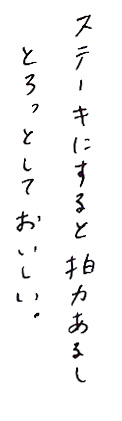 ステーキにすると拍力あるし
とろっとしておいしい。